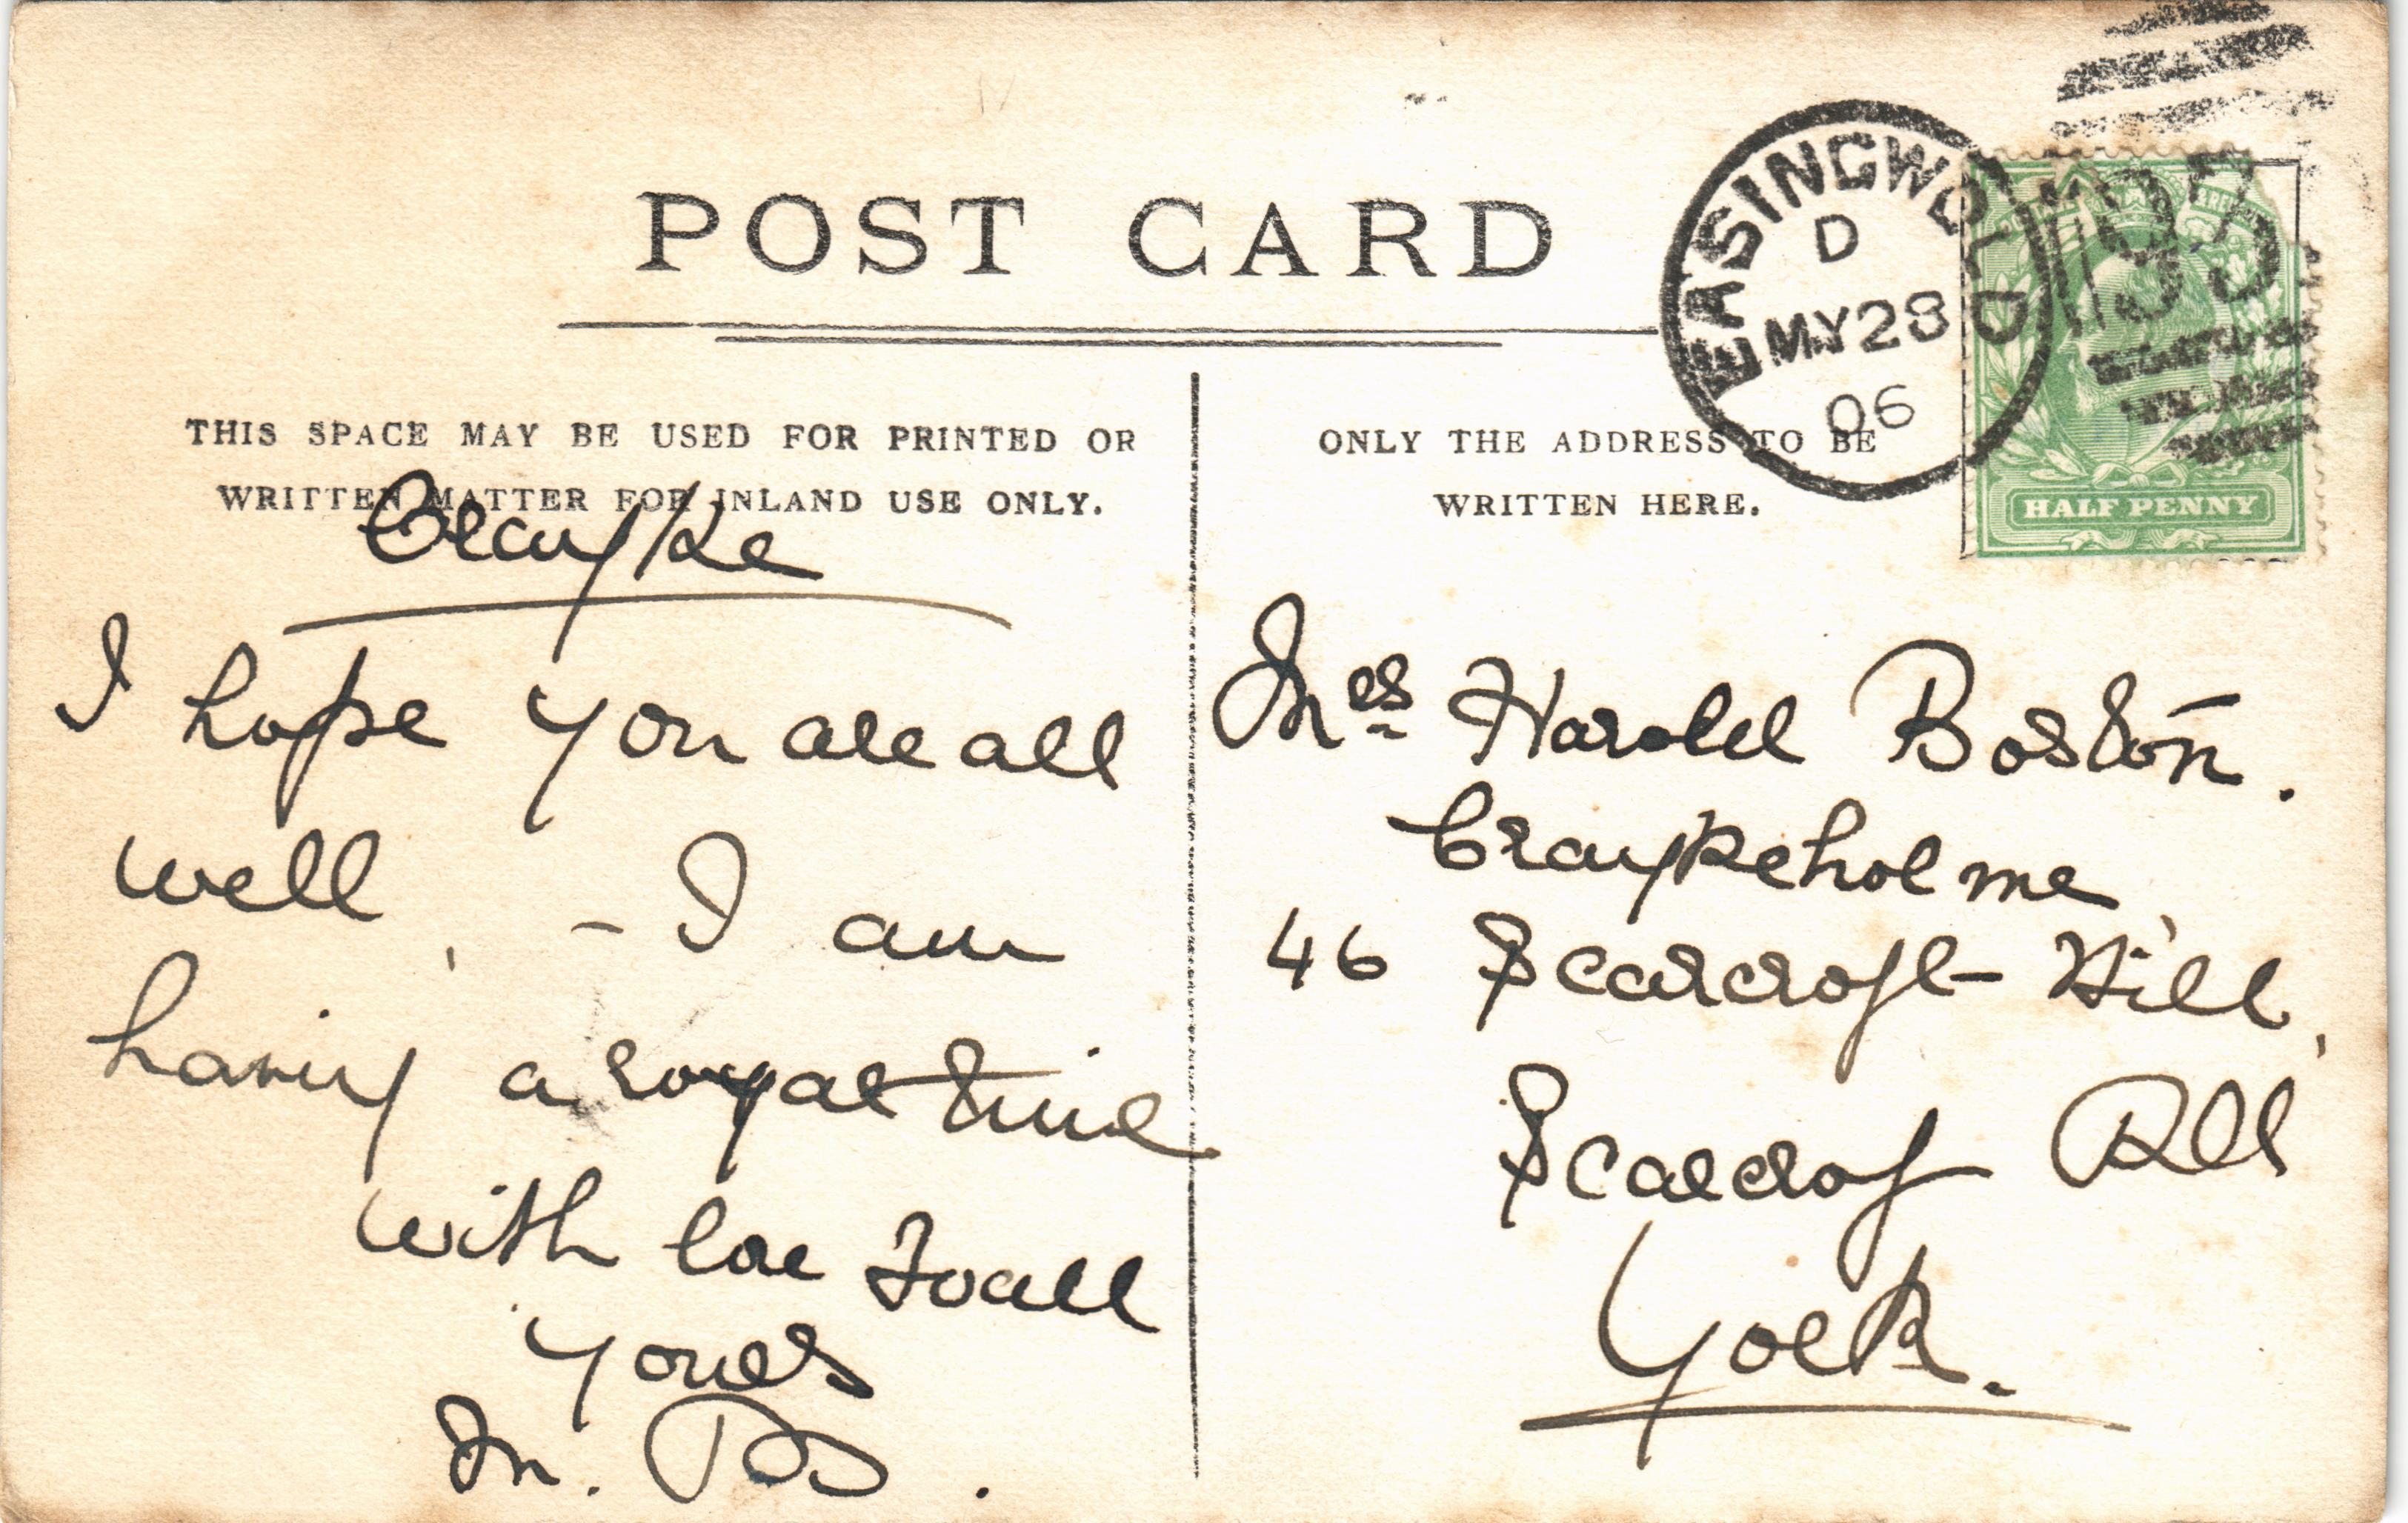 POST CARD
EASINGWOLD
D
MY 28
06
HALF PENNY
THIS SPACE MAY BE USED FOR PRINTED OR
WRITTEN MATTER FOR INLAND USE ONLY.
Crayke
I hope you are all
well, - I am
having a royal time
with love to all
yours
M. B.
ONLY THE ADDRESS TO BE
WRITTEN HERE.
Mrs Harold Boston.
Craykeholme,
46 Scarcroft Hill,
Scarcrof Rd
York.